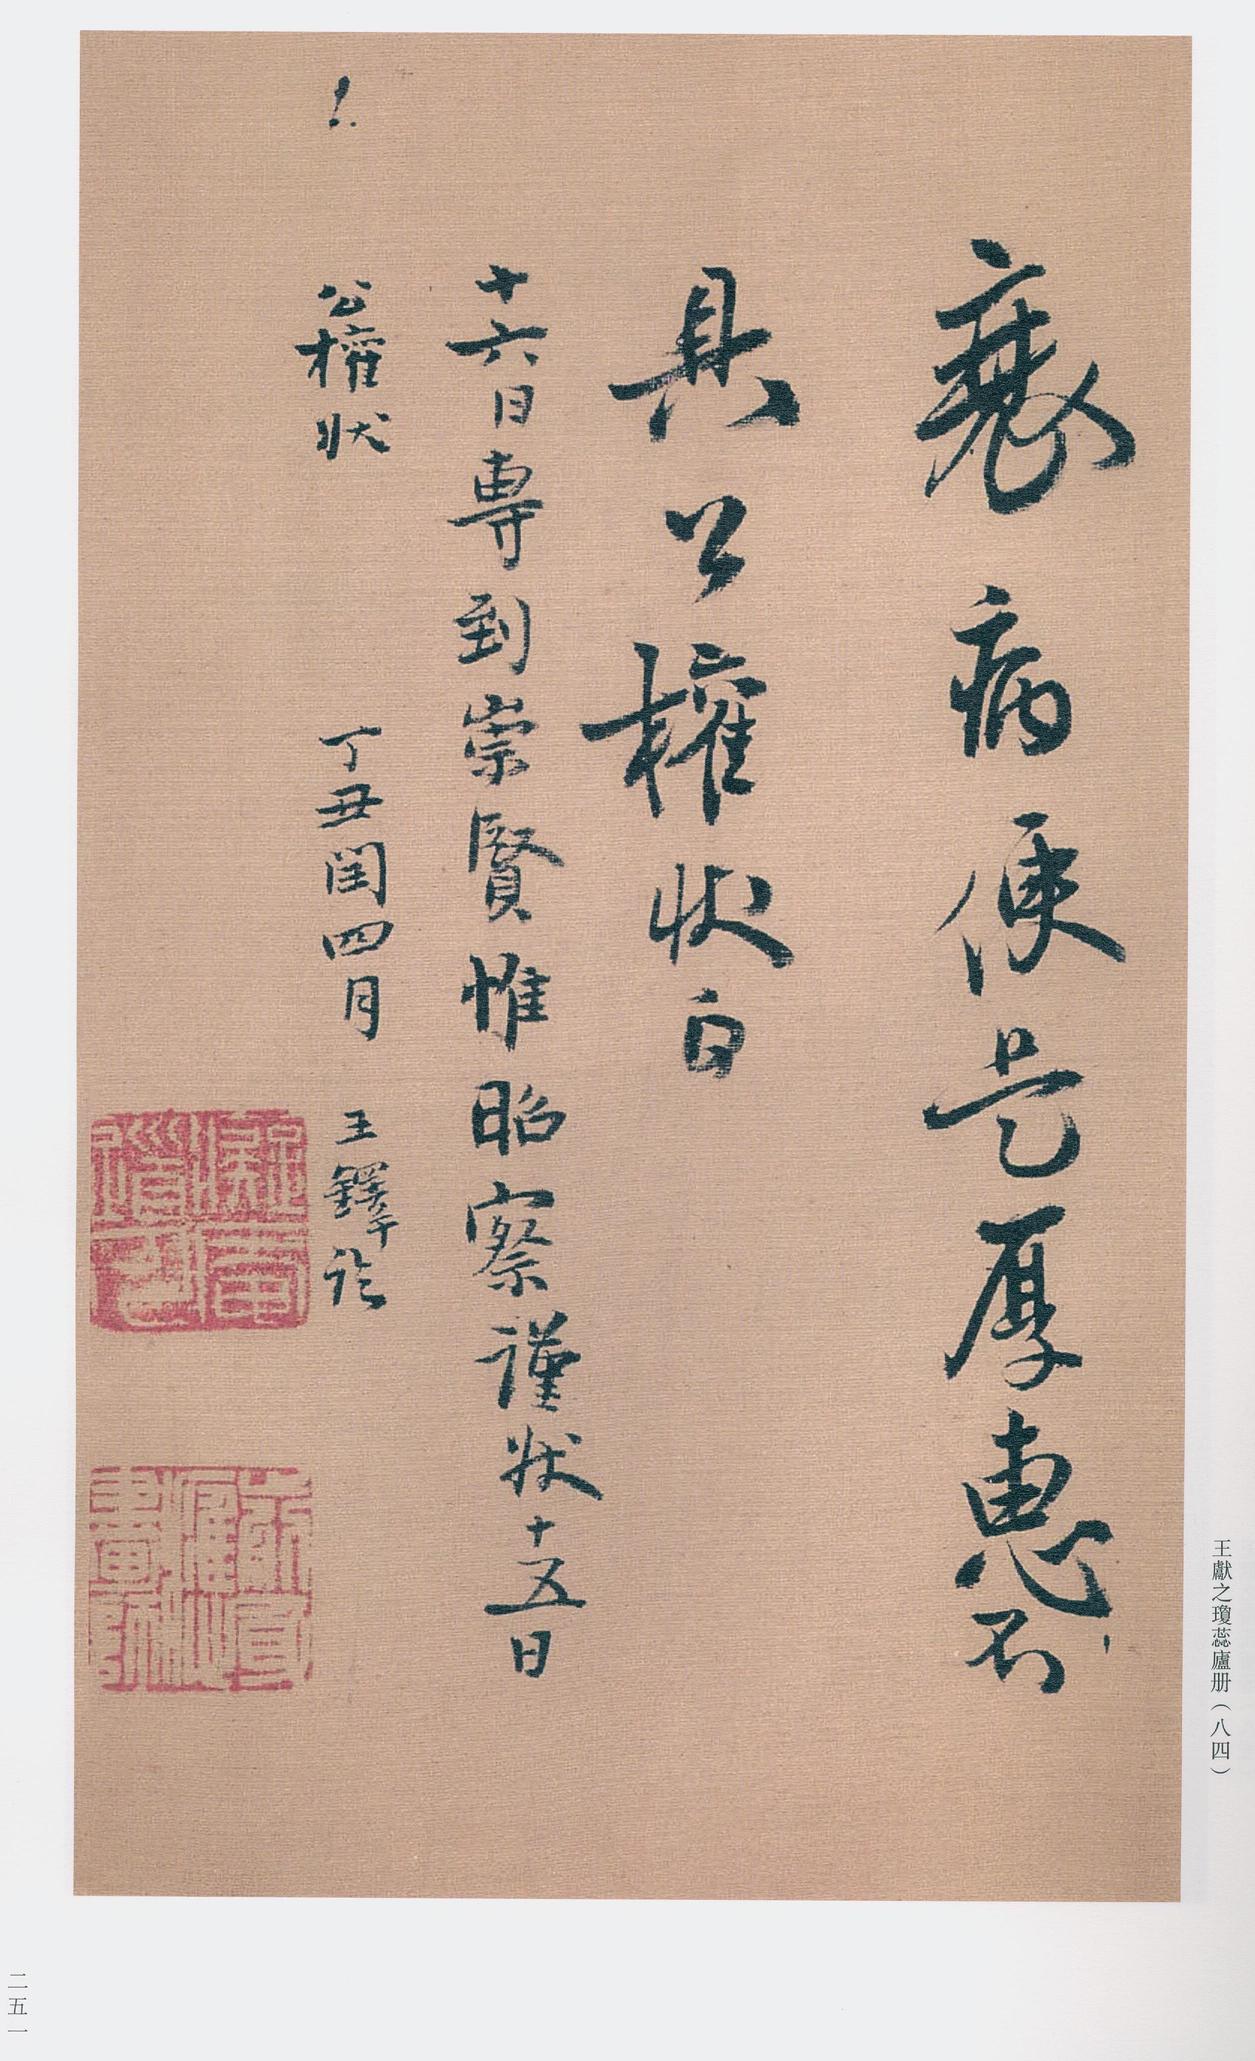 衰病便是厚惠不
具公權状白
十六日專到崇賢惟昭察謹状十五日
公權状　丁丑閏四月　王鐸詮
王獻之瓊蕊廬册（八四）
二五一